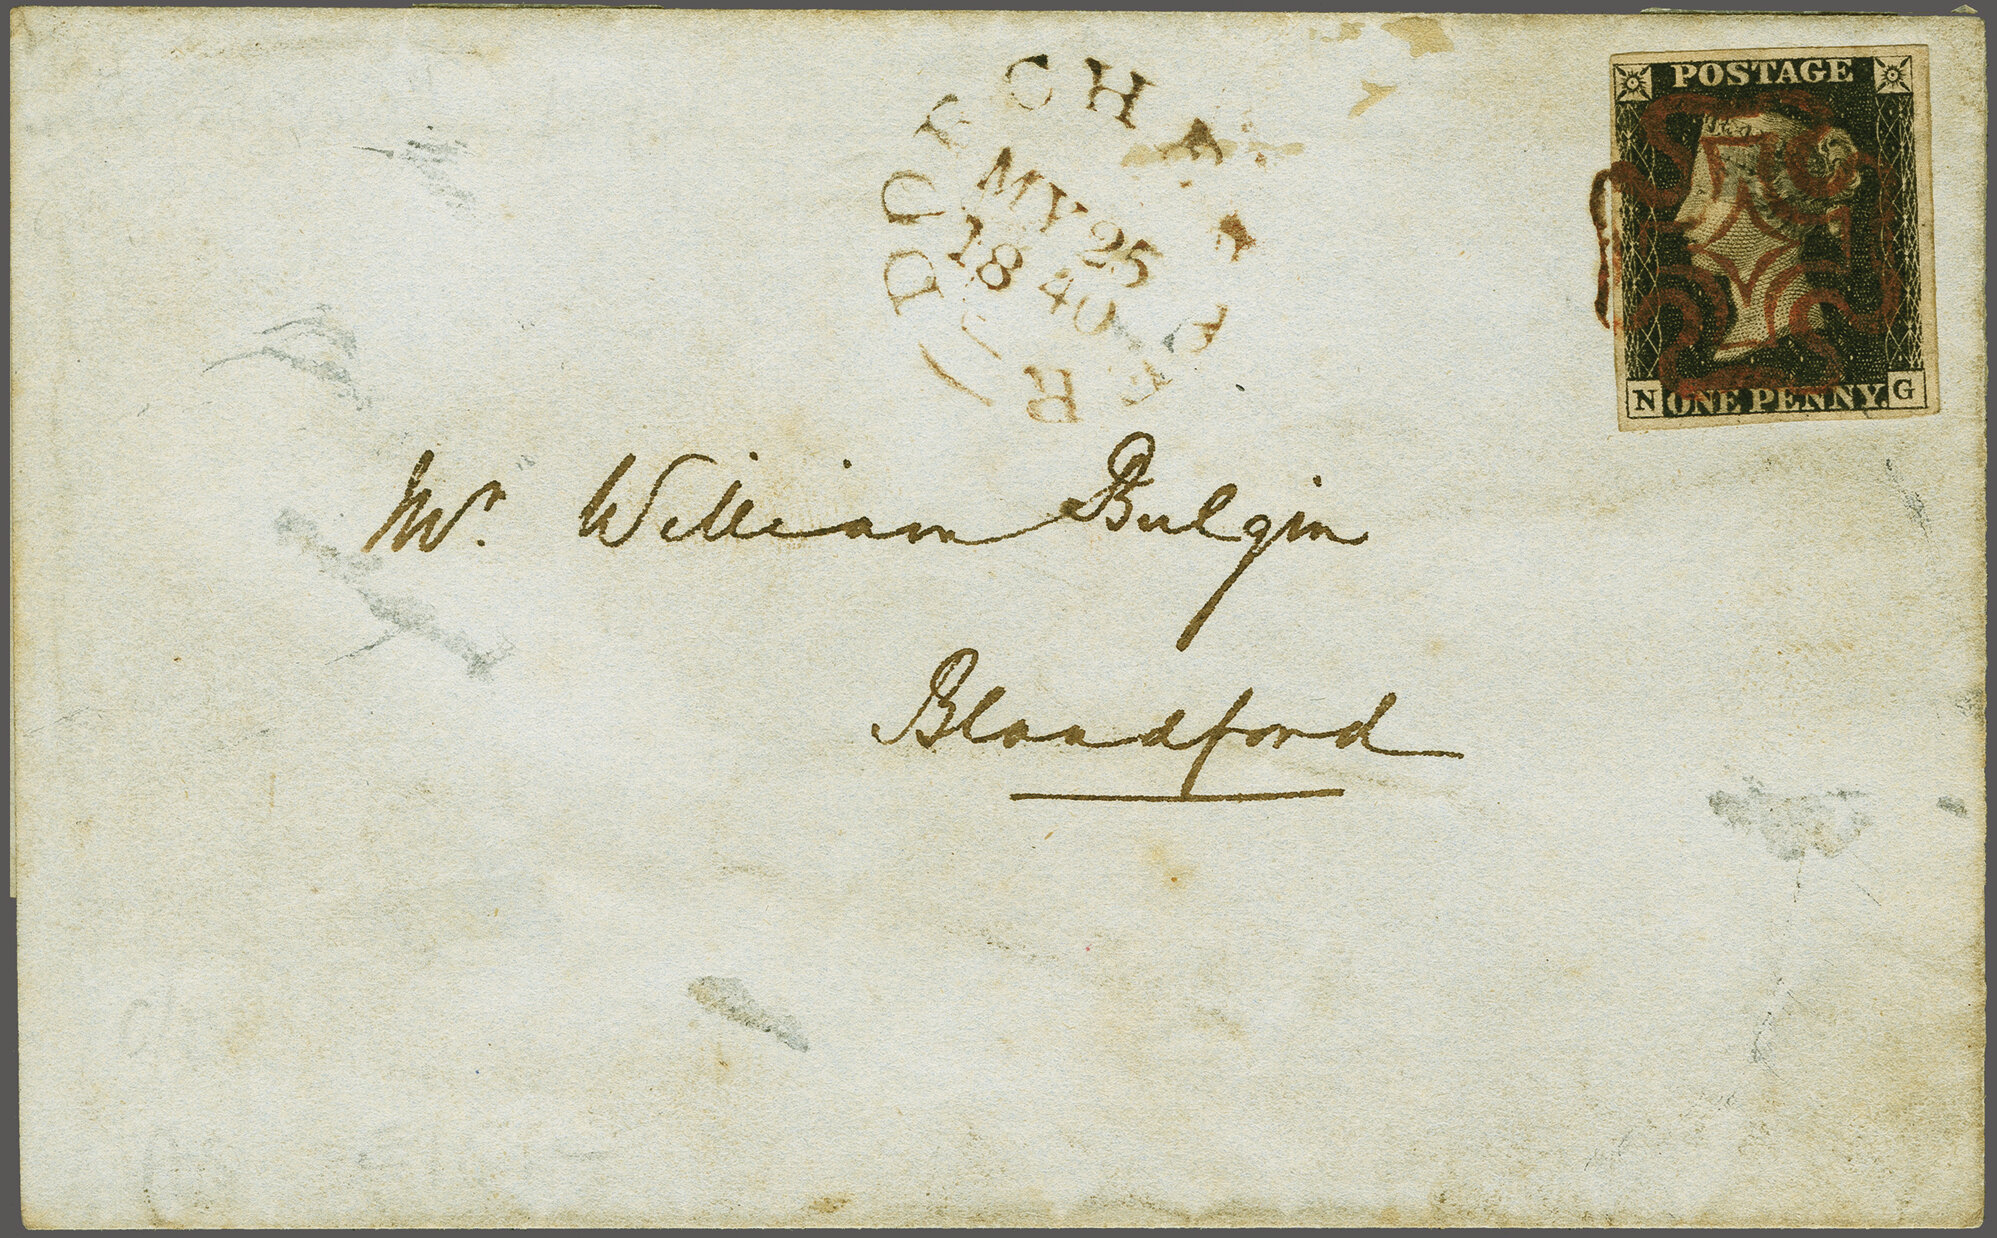 POSTAGE
N ONE PENNY. G
MY 25
1840
Mr. William Bulgin
Blandford